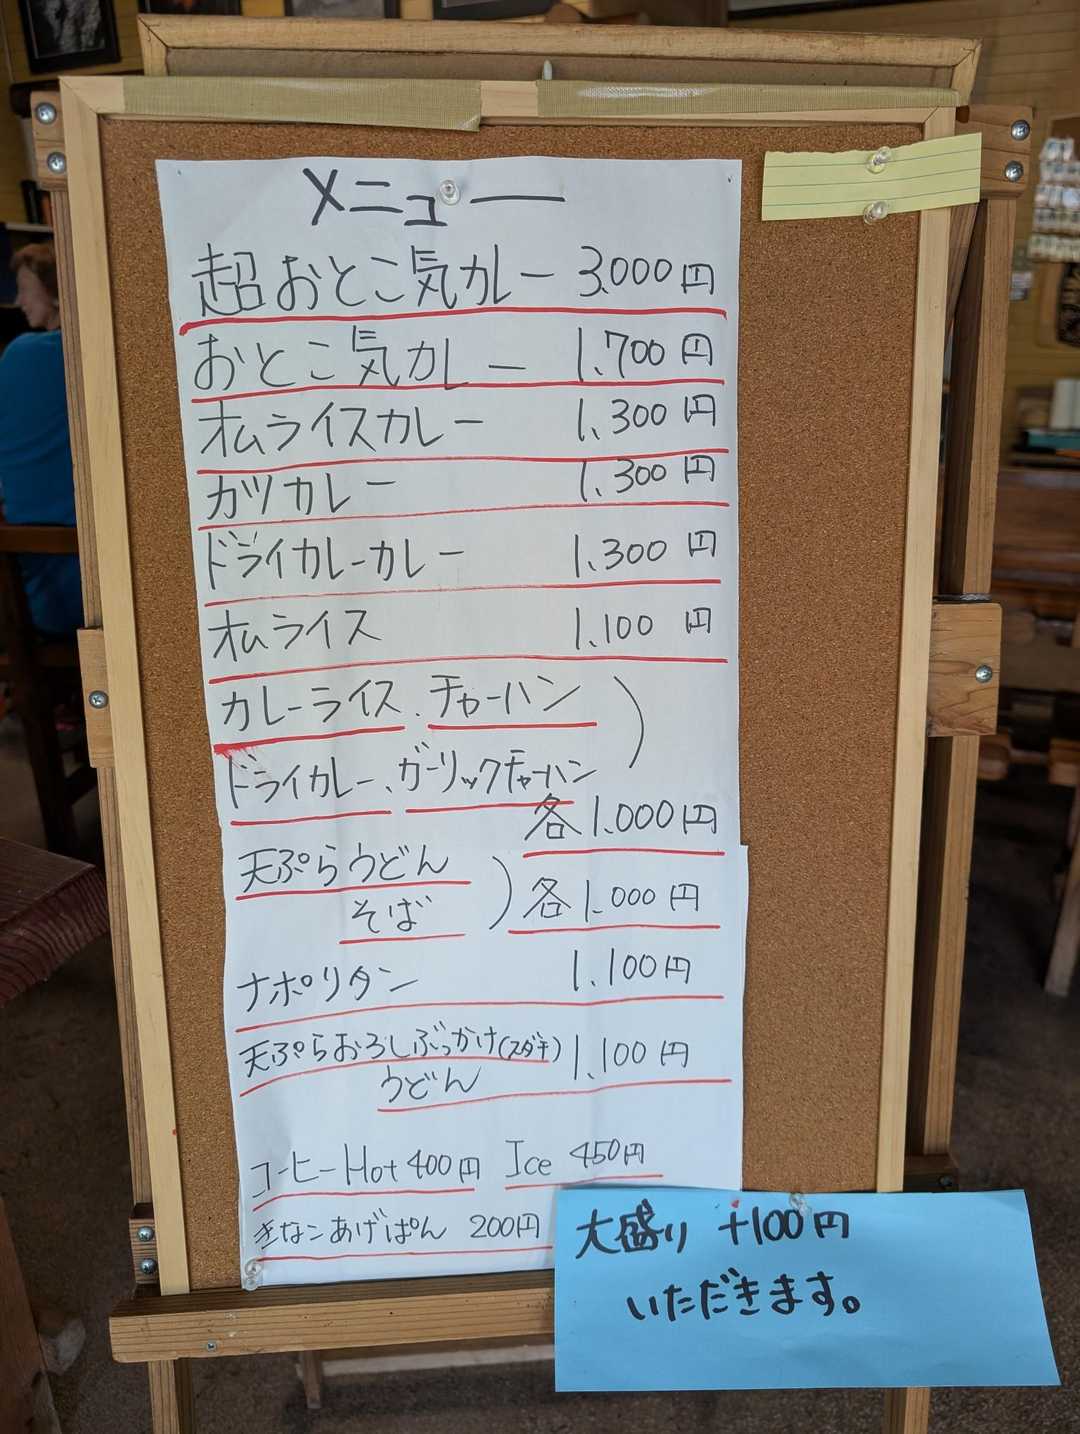 メニュー
超おとこ気カレー 3,000円
おとこ気カレー 1,700円
オムライスカレー 1,300円
カツカレー 1,300円
ドライカレーカレー 1,300円
オムライス 1,100円
カレーライス、チャーハン
ドライカレー、ガーリックチャーハン
各1,000円
天ぷらうどん
そば
各1,000円
ナポリタン 1,100円
天ぷらおろしぶっかけ(スダチ) 1,100円
うどん
コーヒーHot 400円 Ice 450円
きなこあげぱん 200円
大盛り +100円
いただきます。